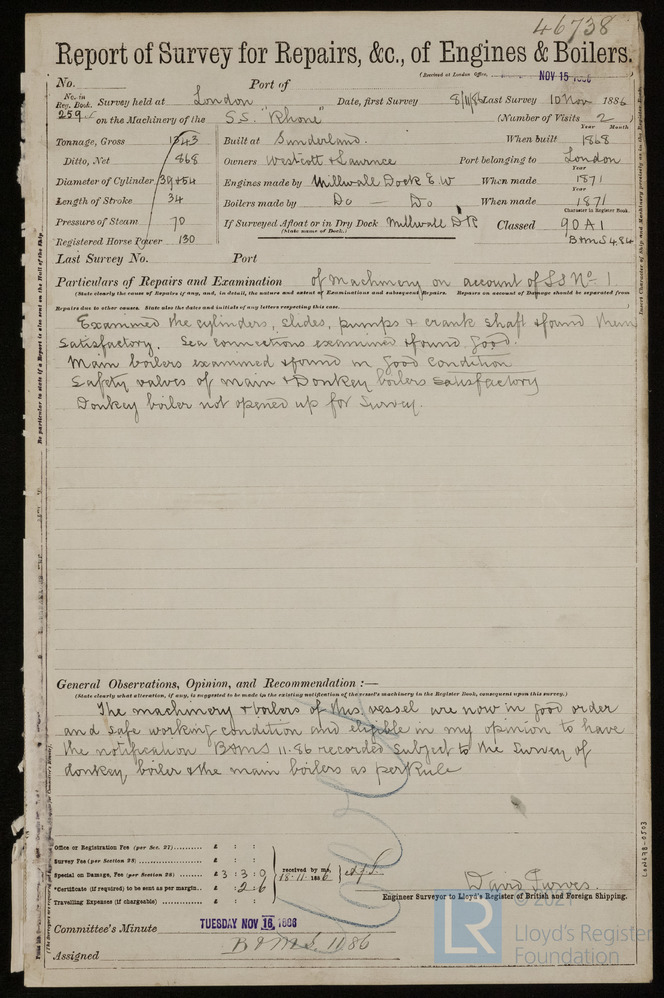 46738
Report of Survey for Repairs, &c., of Engines & Boilers.
(Received at London Office, NOV 15 1886
No. Port of
No. in Reg. Book. Survey held at London Date, first Survey 8/11/86 Last Survey 10 Nov 1886
259 on the Machinery of the S.S. "Rhone" (Number of Visits 2
Year Month
Tonnage, Gross 1343 Built at Sunderland When built 1868
Ditto, Net 868 Owners Westcott & Lawrence Port belonging to London
Year
Diameter of Cylinder 39 & 54 Engines made by Millwall Dock E. W When made 1871
Year
Length of Stroke 34 Boilers made by Do — Do When made 1871
Character in Register Book.
Pressure of Steam 70 If Surveyed Afloat or in Dry Dock Millwall D Classed 90 A1
(State name of Dock.)
Registered Horse Power 130 B&MS 4.84
Last Survey No. Port
Particulars of Repairs and Examination of Machinery on account of SS No. 1
(State clearly the cause of Repairs if any, and, in detail, the nature and extent of Examinations and subsequent Repairs. Repairs on account of Damage should be separated from
Repairs due to other causes. State also the dates and initials of any letters respecting this case.
Examined the cylinders, slides, pumps & crank shaft & found them
satisfactory. Sea connections examined & found good.
Main boilers examined & found in good condition
Safety valves of main & Donkey boilers satisfactory
Donkey boiler not opened up for survey.
General Observations, Opinion, and Recommendation :—
(State clearly what alteration, if any, is suggested to be made in the existing notification of the vessel's machinery in the Register Book, consequent upon this survey.)
The machinery & boilers of this vessel are now in good order
and safe working condition and eligible in my opinion to have
the notification B&MS 11.86 recorded subject to the survey of
donkey boiler & the main boilers as per Rule
Office or Registration Fee (per Sec. 27) £ : :
Survey Fee (per Section 28) £ : :
Special or Damage, Fee (per Section 28) £ 3 : 3 : 0 received by me,
*Certificate (if required) to be sent as per margin £ : 2 : 6 18.11.1886
Travelling Expenses (if chargeable) £ : :
David Purves.
Engineer Surveyor to Lloyd's Register of British and Foreign Shipping.
Committee's Minute TUESDAY NOV 16, 1886
Assigned B&MS. 11.86
© 2021
LR
Lloyd's Register
Foundation